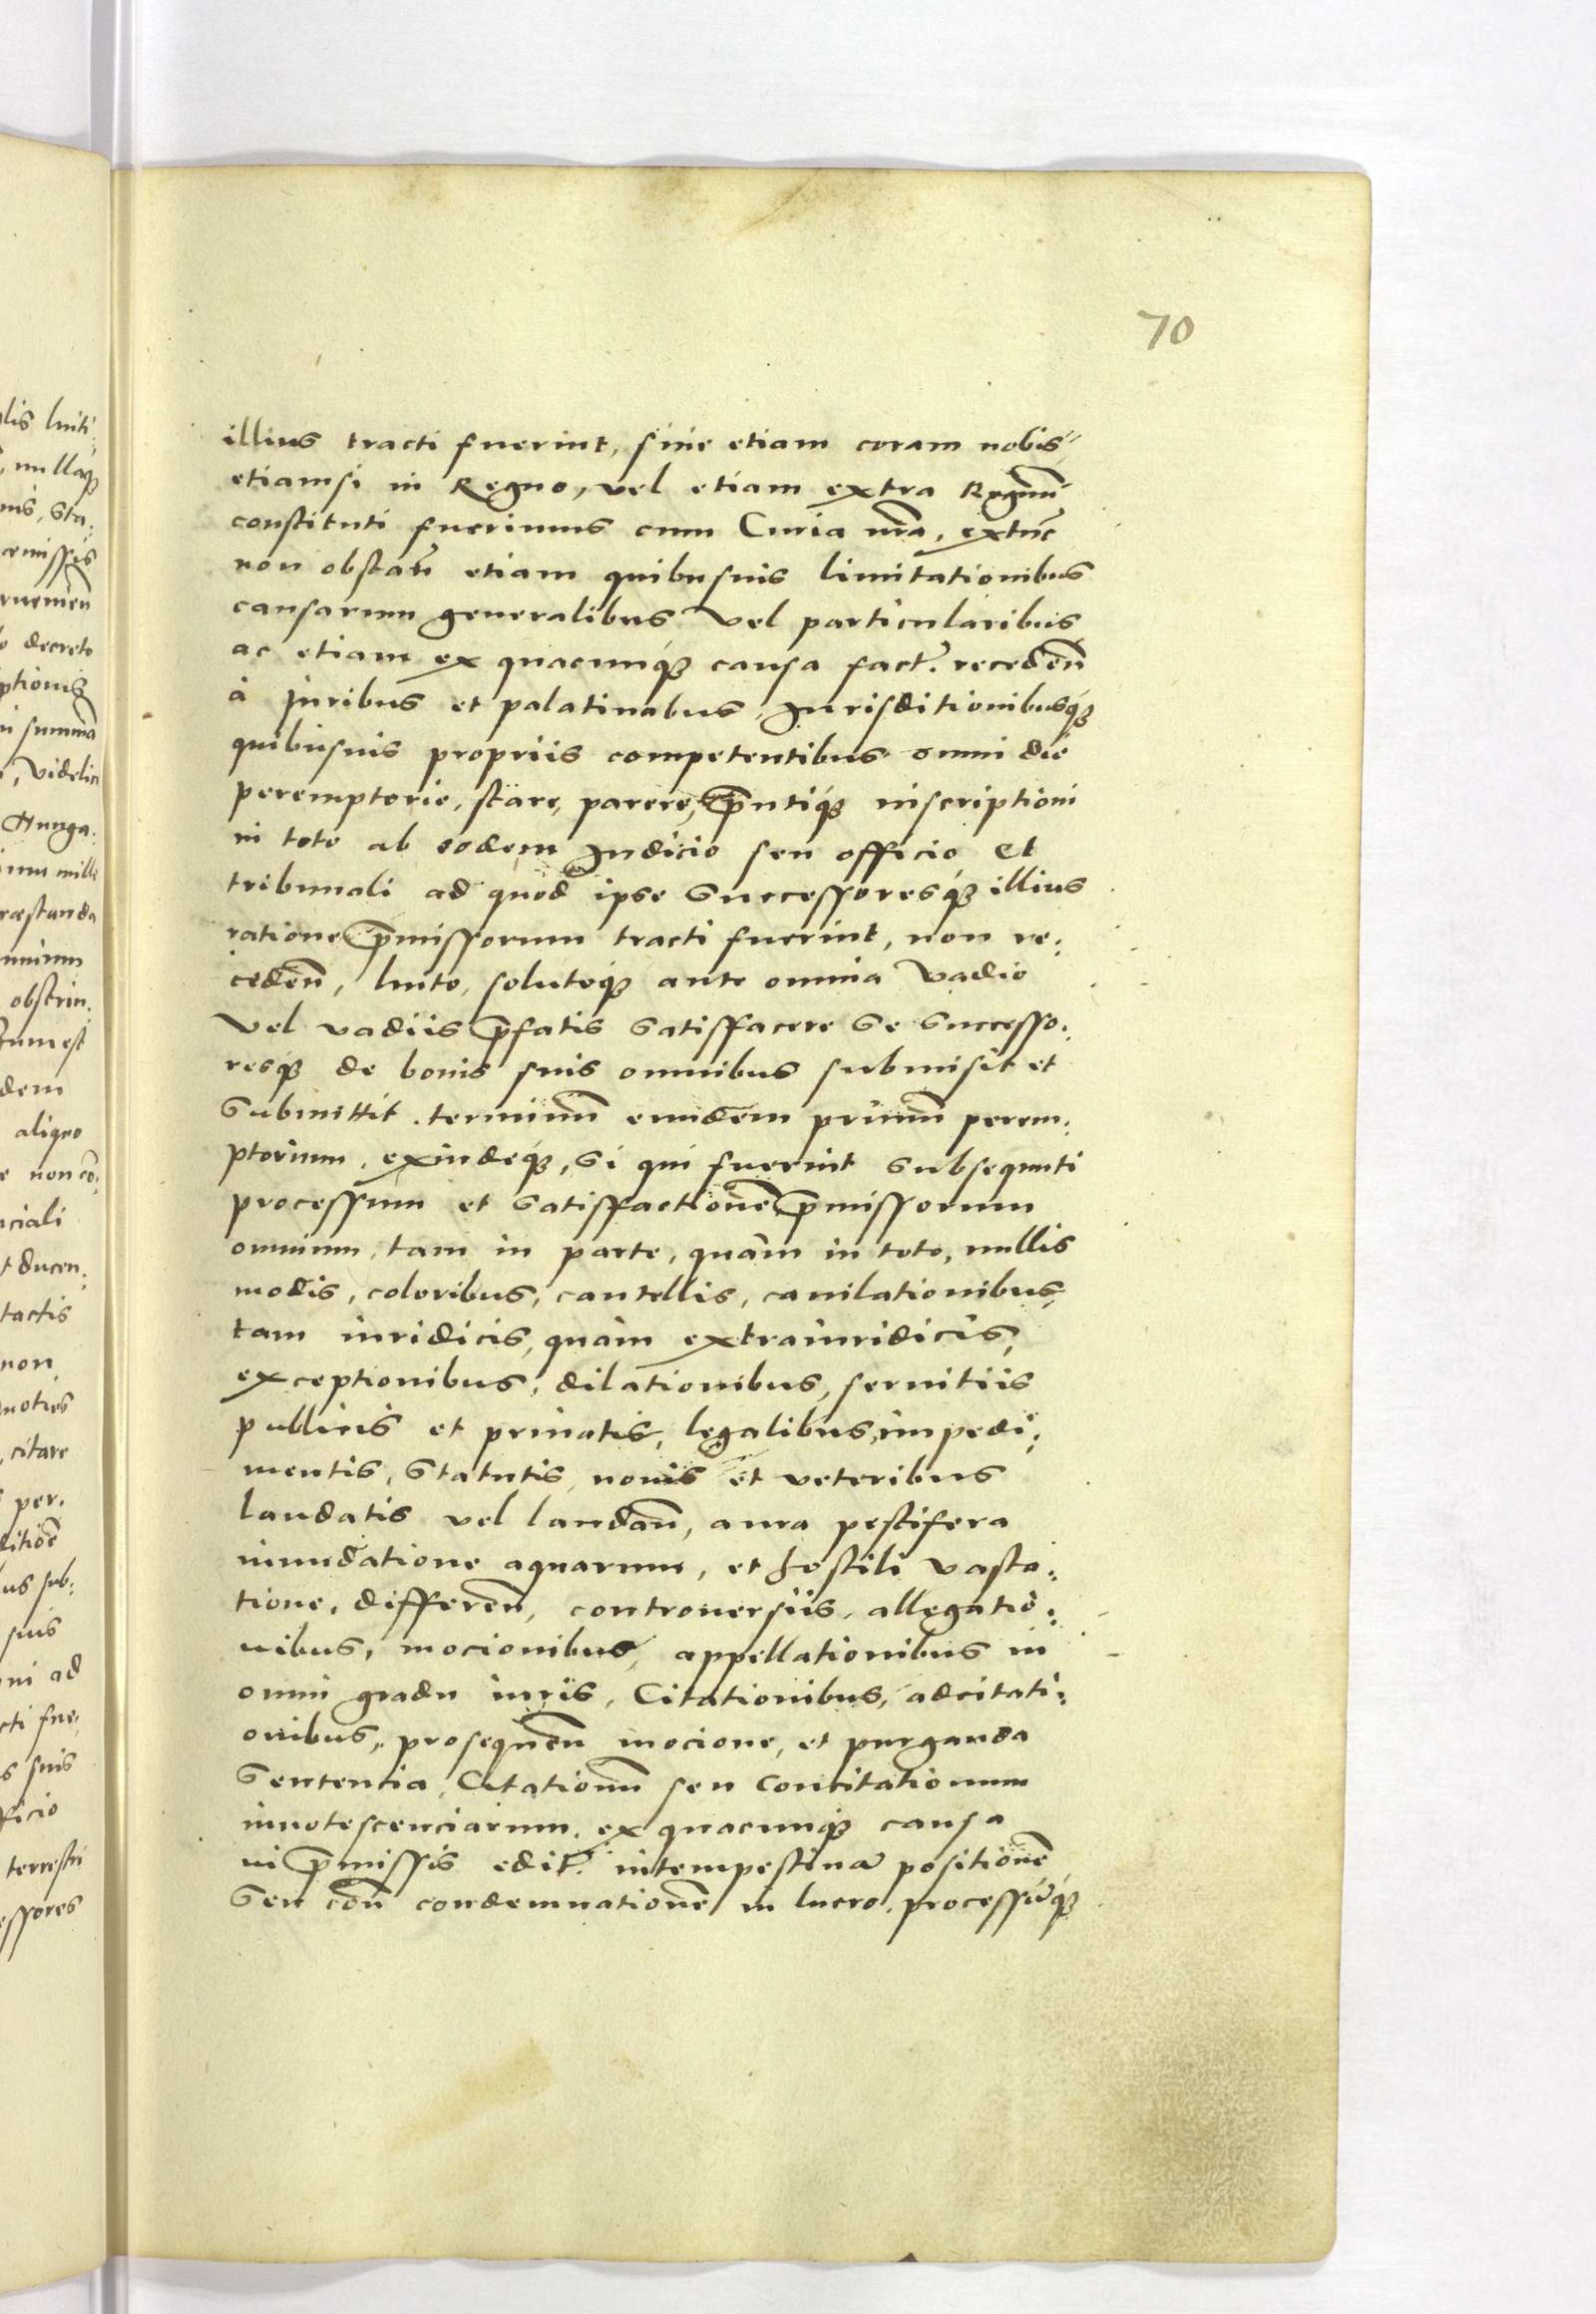 70
illius tracti fuerint, siue etiam coram nobis
etiamsi in Regno, vel etiam extra Regnũ
constituti fuerimus cum Curia nr̃a, extũc
non obstañ etiam quibusuis limitationibus
causarum generalibus vel particularibus
ac etiam ex quacunq́ causa fact̃. recedeñ
à Iuribus et palatinabus, Iurisditionibusq́
quibusuis propriis competentibus omni die
peremptorie, stare, parere, p̃ntiq́ inscriptioni
in toto ab eodem Iudicio seu officio et
tribunali ad quod ipse Successoresq́ illius
ratione p̃missorum tracti fuerint, non re:
cedeñ, luito, solutoq́ ante omnia Vadio
vel vadiis p̃fatis Satisfacere Se Successo:
resq́ de bonis suis omnibus submisit et
Submittit. terminũ eundem primũ perem:
ptorium, exindeq́, Si qui fuerint Subsequuti
processum et Satisfactionẽ p̃missorum
omnium, tam in parte, quàm in toto, nullis
modis, coloribus, cautellis, cauilationibus,
tam iuridicis, quàm extraiuridicis,
exceptionibus, dilationibus, seruitiis
publicis et priuatis, legalibus, impedi:
mentis, Statutis, nouis et veteribus
laudatis vel laudañ, aura pestifera
inundatione aquarum, et hostili vasta:
tione, differeñ, controuersiis, allegatio:
nibus, mocionibus, appellationibus in
omni gradu iuris, Citationibus, adcitati:
onibus, prosequeñ mocione, et purganda
Sententia, Citationũ seu Concitationum
innotescenciarum, ex quacunq́ causa
in p̃missis edit̃. intempestiuã positionẽ
Seu coñ condemnationẽ in lucro, processuq́